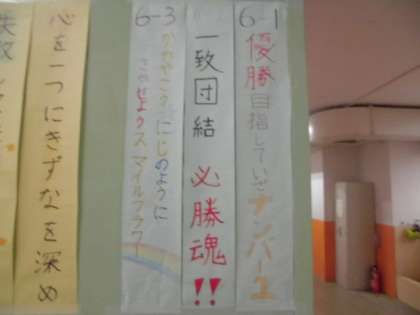 6-1
優勝目指していざナンバー1
一致団結 必勝魂!!
6-3
かがやこう にじのように
さかせようスマイルフラワー
心を一つにきずなを深め
失敗